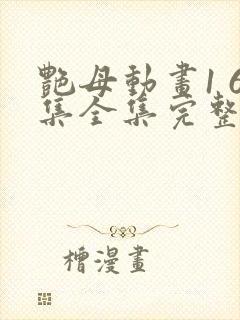 艷母動畫16
集全集完整
檀漫畫